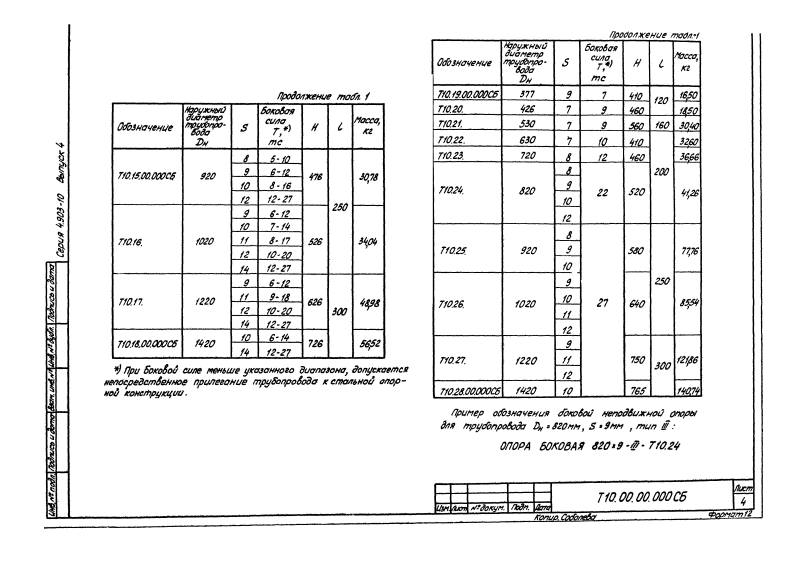 Серия 4.903-10 Выпуск 4
Продолжение табл. 1
Обозначение | Наружный диаметр трубопро-вода Dн | S | Боковая сила T,*) тс | H | L | Масса, кг
Т10.15.00.000СБ | 920 | 8 | 5-10 | 476 | 250 | 30,78
9 | 6-12
10 | 8-16
12 | 12-27
Т10.16. | 1020 | 9 | 6-12 | 526 | 34,04
10 | 7-14
11 | 8-17
12 | 10-20
14 | 12-27
Т10.17. | 1220 | 9 | 6-12 | 626 | 300 | 48,98
11 | 9-18
12 | 10-20
14 | 12-27
Т10.18.00.000СБ | 1420 | 10 | 6-14 | 726 | 56,52
14 | 12-27
*) При боковой силе меньше указанного диапазона, допускается
непосредственное прилегание трубопровода к стальной опор-
ной конструкции.
Продолжение табл. 1
Обозначение | Наружный диаметр трубопро-вода Dн | S | Боковая сила T,*) тс | H | L | Масса, кг
Т10.19.00.000СБ | 377 | 9 | 7 | 410 | 120 | 16,50
Т10.20. | 426 | 7 | 9 | 460 | 18,50
Т10.21. | 530 | 7 | 9 | 560 | 160 | 30,40
Т10.22. | 630 | 7 | 10 | 410 | 200 | 32,60
Т10.23. | 720 | 8 | 12 | 460 | 36,66
Т10.24. | 820 | 8 | 22 | 520 | 41,26
9
10
12
Т10.25. | 920 | 8 | 27 | 580 | 250 | 77,76
9
10
Т10.26. | 1020 | 9 | 640 | 85,54
10
11
12
Т10.27. | 1220 | 9 | 750 | 300 | 121,86
11
12
Т10.28.00.000СБ | 1420 | 10 | 765 | 140,74
Пример обозначения боковой неподвижной опоры
для трубопровода Dн = 820мм, S = 9мм, тип III :
ОПОРА БОКОВАЯ 820×9 - III - Т10.24
Изм. Лист № докум. Подп. Дата
Т10.00.00.000 СБ
Лист
4
Копир. Соболева
Формат 12
Инв. № подл. Подпись и дата Взам. инв. № Инв. № дубл. Подпись и дата